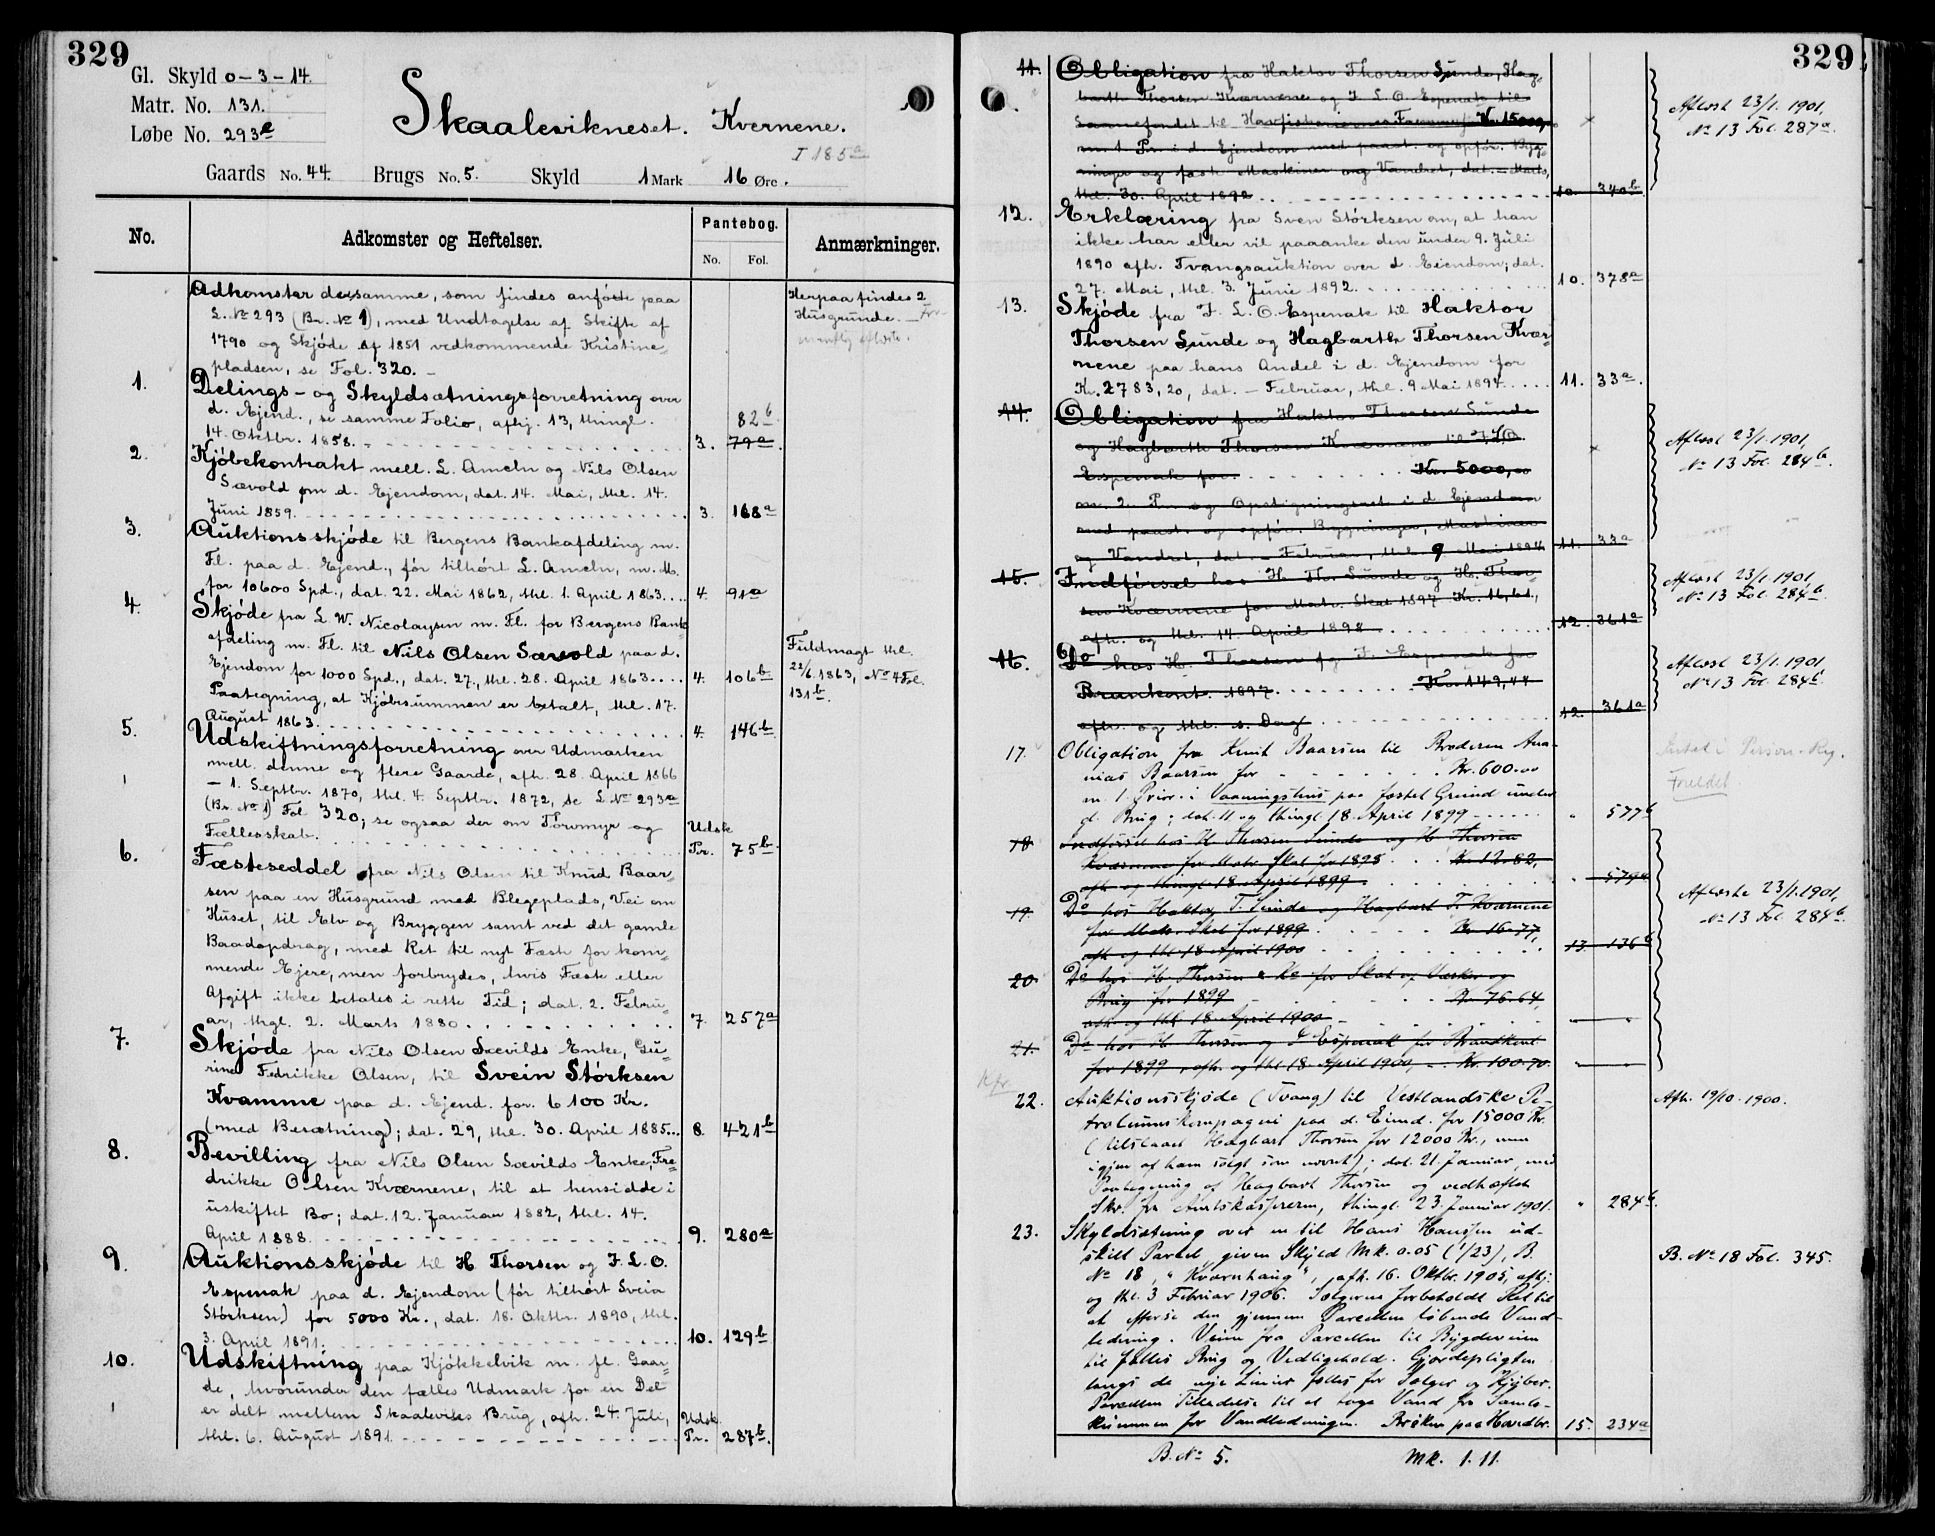 329
Gl. Skyld 0-3-14.
Matr. No. 131.
Løbe No. 293e
Skaalevikneset. Kvernene.
I 185a
Gaards No. 44. Brugs No. 5. Skyld 1 Mark 16 Øre.
No. Adkomster og Heftelser. Pantebog. Anmærkninger.
No. Fol.
Adkomster de samme, som findes anförte paa
L. No 293 (Br. No 1), med Undtagelse af Skifte af
1790 og Skjöde af 1851 vedkommende Kristine-
pladsen, se Fol. 320. -
Herpaa findes 2
Husgrunde.
1. Delings- og Skyldsætningsforretning over
d. Ejend., se samme Folio, afhj. 13, thingl. 82b
14. Oktbr. 1858. 3. 79a
2. Kjöbekontrakt mell. L. Ameln og Nils Olsen
Sævold om d. Ejendom, dat. 14. Mai, thl. 14.
Juni 1859. 3. 168a
3. Auktionsskjöde til Bergens Bankafdeling m.
Fl. paa d. Ejend., för tilhört L. Ameln, m. M.
for 10600 Spd., dat. 22. Mai 1862, thl. 1. April 1863.... 4. 91a
4. Skjöde fra L W. Nicolaysen m. Fl. for Bergens Bank-
afdeling m. Fl. til Nils Olsen Sævold paa d.
Ejendom for 1000 Spd., dat. 27., thl. 28. April 1863.... 4. 106b
Paategning, at Kjöbesummen er betalt, thl. 17.
August 1863. 4. 146b
Fuldmagt thl.
22/6 1863, No 4 Fol.
131b.
5. Udskiftningsforretning over Udmarken
mell. denne og flere Gaarde, afh. 28. April 1866
- 1. Septbr. 1870, thl. 4. Septbr. 1872, se L No 293a
(Br. No 1) Fol 320; se ogsaa der om Torvmyr og
Fællesskab. Udsk. Pr. 75b
6. Fæsteseddel fra Nils Olsen til Knud Baar-
sen paa en Husgrund med Blegeplads, Vei om
Huset, til Elv og Bryggen samt ved det gamle
Baadopdrag, med Ret til nyt Fæste for kom-
mende Ejere, men forbrydes, hvis Fæste eller
Afgift ikke betales i rette Tid; dat. 2. Febru-
ar, thgl. 2. Marts 1880. 7. 257a
7. Skjöde fra Nils Olsen Sævilds Enke, Gu-
rine Fedrikke Olsen, til Svein Störksen
Kvamme paa d. Ejend. for 6100 Kr.
(med Besætning); dat. 29, thl. 30. April 1885... 8. 421b
8. Bevilling fra Nils Olsen Sævilds Enke, Fre-
drikke Olsen Kværnene, til at hensidde i
uskiftet Bo; dat. 12. Januar 1882, thl. 14.
April 1888. 9. 280a
9. Auktionsskjöde til H. Thorsen og F. L. O.
Espenak paa d. Ejendom (för tilhört Svein
Störksen) for 5000 Kr., dat. 18. Oktbr. 1890, thl.
3. April 1891. 10. 129b
10. Udskiftning paa Kjökkelvik m. fl. Gaar-
de, hvorunder den fælles Udmark for en Del
er delt mellem Skaaleviks Brug, afh. 24. Juli,
thl. 6. August 1891. Udsk. Pr. 287b.
329
11. Obligation fra Haktor Thorsen Sunde, Hag-
barth Thorsen Kværnene og F. L. O. Espenak til
Laanefondet til Havfiskeriernes Fremme for Kr. 15000,
m. 1. Pr. i d. Ejendom med paast. og opför. Byg-
ninger og faste Maskiner og Vandret, dat. - Marts,
thl. 30. April 1892 10. 340b
Aflæst 23/1. 1901,
No 13 Fol. 287a.
12. Erklæring fra Sven Störksen om, at han
ikke har eller vil paaanke den under 9. Juli
1890 afh. Tvangsauktion over d. Eiendom; dat.
27. Mai, thl. 3. Juni 1892. 10. 378a
13. Skjöde fra F. L. O. Espenak til Haktor
Thorsen Sunde og Hagbarth Thorsen Kvær-
nene paa hans Andel i d. Ejendom for
Kr. 2783,20, dat. - Februar, thl. 9 Mai 1894.... 11. 33a.
14. Obligation fra Haktor Thorsen Sunde
og Hagbarth Thorsen Kværnene til F. L. O.
Espenak for Kr. 5000,00
m. 2. Pr. og Opstigningsret i d. Ejendom
med paast. og opför. Bygninger, Maskiner
og Vandret, dat. - Februar, thl. 9 Mai 1894 11. 33a
Aflæst 23/1. 1901,
No 13 Fol. 284b.
15. Indförsel hos H. Thr. Sunde og H. Thor-
sen Kværnene for Matr. Skat 1897 Kr. 16,61,
afh. og thl. 14. April 1898. 12. 361a
Aflæst 23/1. 1901,
No 13 Fol. 284b.
16. Do hos H. Thorsen og F. Espenak for
Brankont. 1897 Kr. 149,44
afh. og thl. s. Dag 12. 361a
Aflæst 23/1. 1901
No 13 Fol. 284b.
17. Obligation fra Knut Baarsen til Broderen Ana-
nias Baarsen for Kr. 600.00
m. 1. Prior. i Vaaningshus paa fæstet Grund under
d. Brug; dat. 11 og thingl. 18. April 1899 " 577b
18. Indförsel hos H. Thorsen Sunde og H Thorsen
Kværnene for Matr. Skat for 1898 Kr. 12.82,
afh. og thingl. 18. April 1899. " 579a
19. Do hos Haktor T. Sunde og Hagbart T. Kværnene
for Matr. Skat for 1899 Kr. 16.77,
afh og thl. 18 April 1900 13 136b
20. Do hos H. Thorsen & Ko for Skat og
Brug for 1899 Kr. 76.64,
afh. og thl. 18. April 1900
21. Do hos H Thorsen og F Espenak for Brandkont.
for 1899, afh. og thl. 18. April 1900, Kr. 100.70.
Aflæste 23/1. 1901,
No 13 Fol 284b.
Kfr.
22. Auktionsskjöde (Tvang) til Vestlandske Pe-
troleumskompagni paa d. Eiend. for 15000 Kr.
(tilslaaet Hagbart Thorsen for 12000 Kr., men
igjen af ham solgt som nævnt); dat. 21. Januar, med
Paategning af Hagbart Thorsen og vedhæftet
Skr. fra Amtskassereren, thingl. 23. Januar 1901. " 284b.
Afh. 19/10. 1900.
23. Skyldsætning over en til Hans Hanssen ud-
skilt Parcel, given Skyld Mk. 0.05 (1/23), B.
No 18, "Kværnhaug", afh. 16. Oktbr. 1905, afhj.
og thl. 3 Februar 1906. Sælgeren forbeholdt Ret til
at efterse den gjennem Parcellen löbende Vand-
ledning. Veien fra Parcellen til Bygdeveien
til fælles Brug og Vedligehold. Gjerdepligten
langs de nye Linier fælles for Sælger og Kjöber.
Parcellen Tilladelse til at tage Vand fra Samle-
kummen for Vandledningen. 15. 234a
B. No 18 Fol. 345.
B. No 5. Mk. 1.11